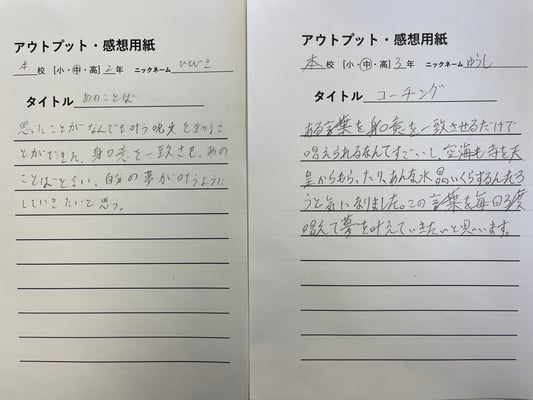 アウトプット・感想用紙
本 校 [小・中・高] 2 年 ニックネーム
タイトル あのことば
思ったことがなんでも叶う呪文を知るこ
とができた。身口意を一致させ、あの
ことばを言い、自分の夢が叶うように
していきたいと思う。
アウトプット・感想用紙
本 校 [小・中・高] 3 年 ニックネーム ゆうし
タイトル コーチング
ある言葉を身口意を一致させるだけで
唱えられるなんてすごいし、空海も寺を天
皇からもらったり、あんな水晶いくらするんだろ
うと気になりました。この言葉を毎日3度
唱えて夢を叶えていきたいと思います。